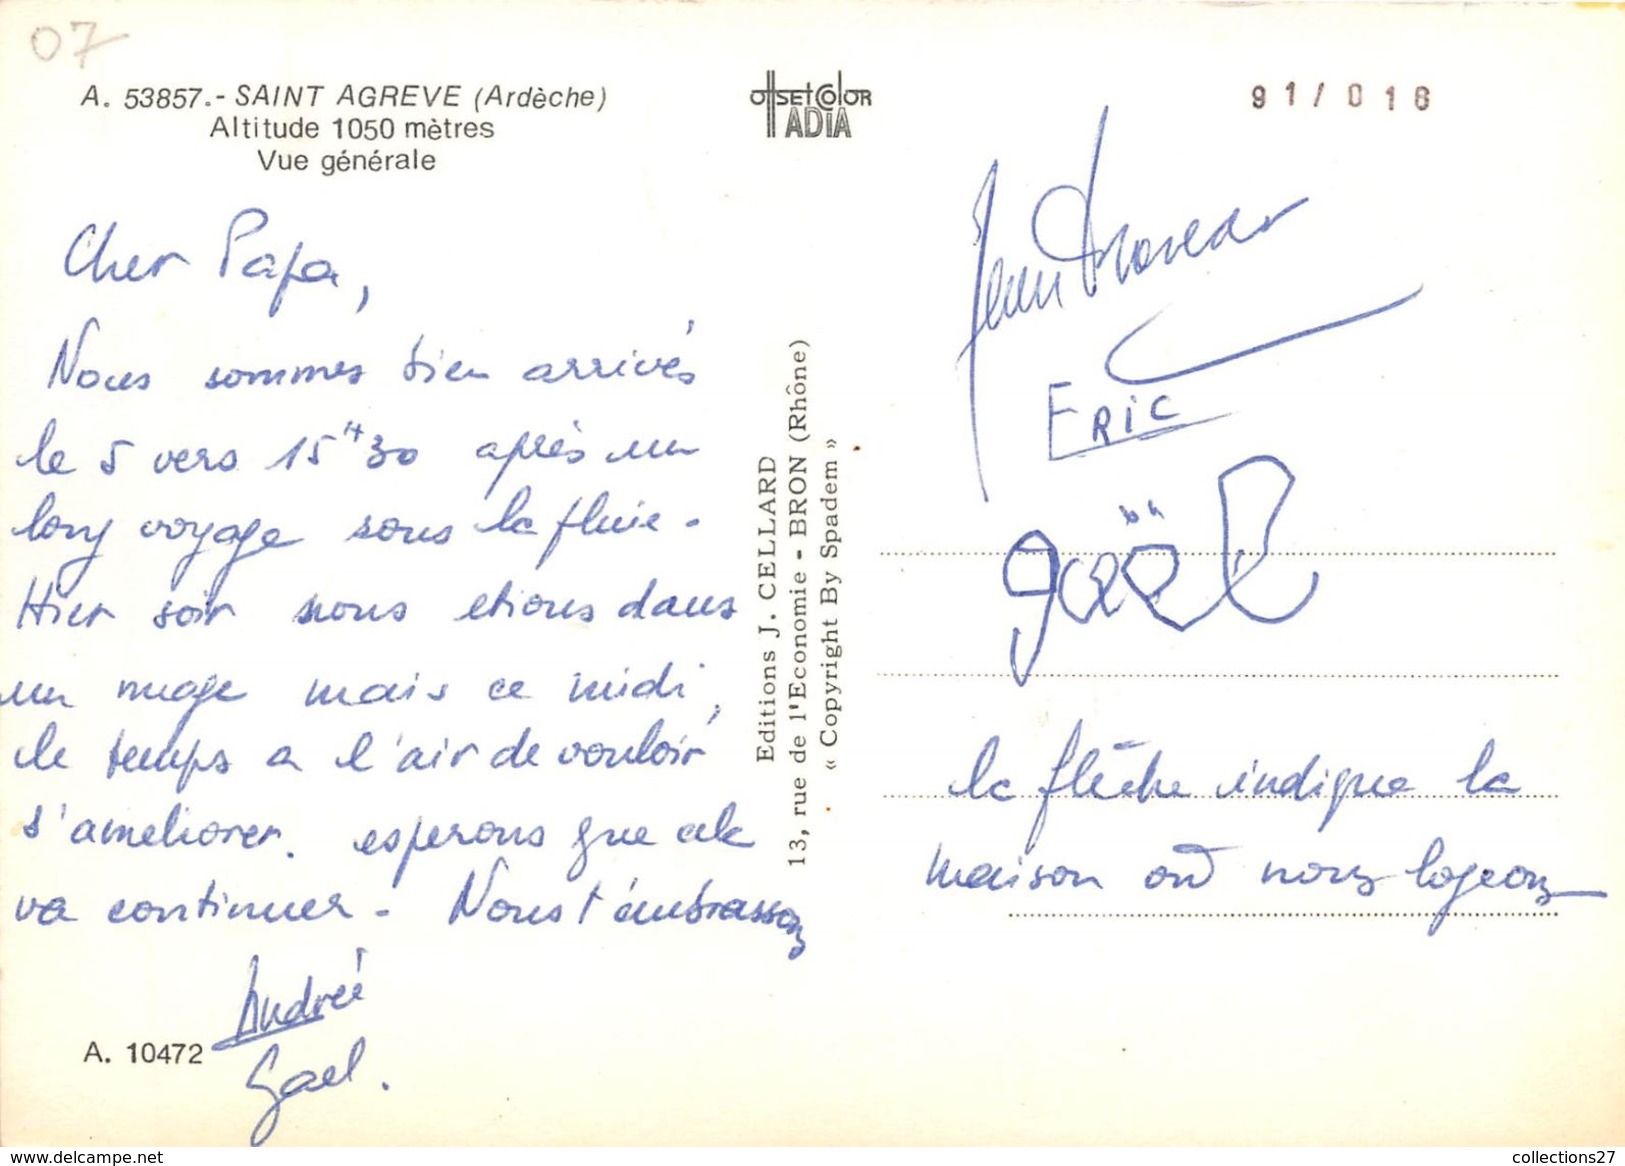 07
A. 53857.- SAINT AGREVE (Ardèche)
Altitude 1050 mètres
Vue générale
Cher Papa,
Nous sommes bien arrivés
le 5 vers 15H30 après un
long voyage sous la pluie.
Hier soir nous etions dans
un nuage mais ce midi,
le temps a l'air de vouloir
s'améliorer. esperons que cela
va continuer. Nous t'embrassons
Andrée
Gael.
A. 10472
OffsetColor
ADIA
Editions J. CELLARD
13, rue de l'Economie - BRON (Rhône)
« Copyright By Spadem »
91/016
Jean
ERIC
gaël
la flèche indique la
maison où nous logeons
collections27